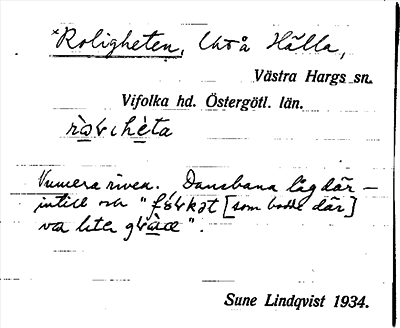 *Roligheten, Utå Hälla,
Västra Hargs sn.
Vifolka hd. Östergötl. län.
Numera riven. Dansbana låg där-
intill och "fɷ́lkət [som bodde där]
va lite
Sune Lindqvist 1934.